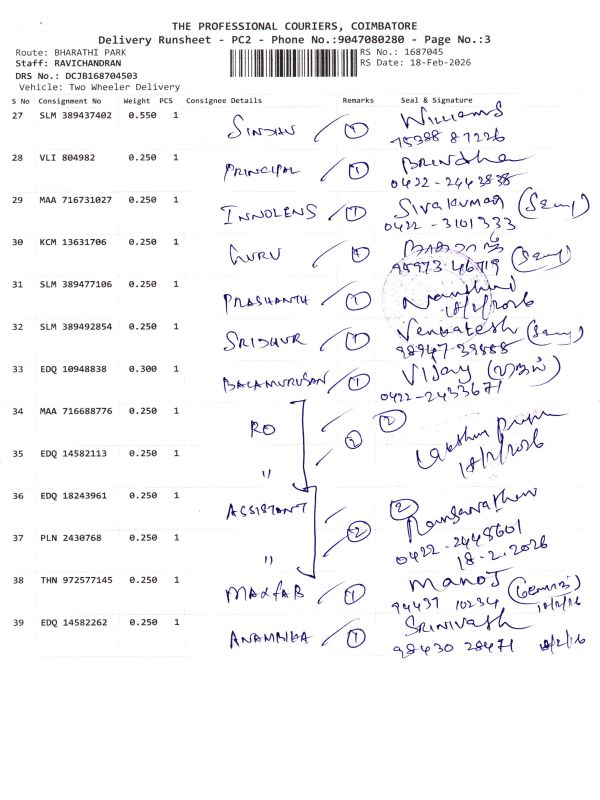 THE PROFESSIONAL COURIERS, COIMBATORE
Delivery Runsheet - PC2 - Phone No.:9047080280 - Page No.:3
Route: BHARATHI PARK
RS No.: 1687045
Staff: RAVICHANDRAN
RS Date: 18-Feb-2026
DRS No.: DCJB168704503
Vehicle: Two Wheeler Delivery
S No Consignment No Weight PCS Consignee Details Remarks Seal & Signature
27 SLM 389437402 0.550 1 SINDHU 1 WILLIAMS
75388 87226
28 VLI 804982 0.250 1 PRINCIPAL 1 Brindha
0422-2443838
29 MAA 716731027 0.250 1 INNOLENS 1 Sivakumar
0422-3101333
30 KCM 13631706 0.250 1 GURU 1
95973 46719
31 SLM 389477106 0.250 1 PRASHANTH 1
18/2/2026
32 SLM 389492854 0.250 1 SRIDHUR 1 Venkatesh
98947 39888
33 EDQ 10948838 0.300 1 BALAMURUGAN 1 Vijay
0422-2433671
34 MAA 716688776 0.250 1 RO 2 2
35 EDQ 14582113 0.250 1 " 18/2/2026
36 EDQ 18243961 0.250 1 ASSISTANT 2 2
37 PLN 2430768 0.250 1 " 0422-2448601
18-2-2026
38 THN 972577145 0.250 1 MAXFAB 1 MANOJ
94437 10234 18/2/26
39 EDQ 14582262 0.250 1 ANAMBIKA 1 SRINIVASH
98430 28471 18/2/26